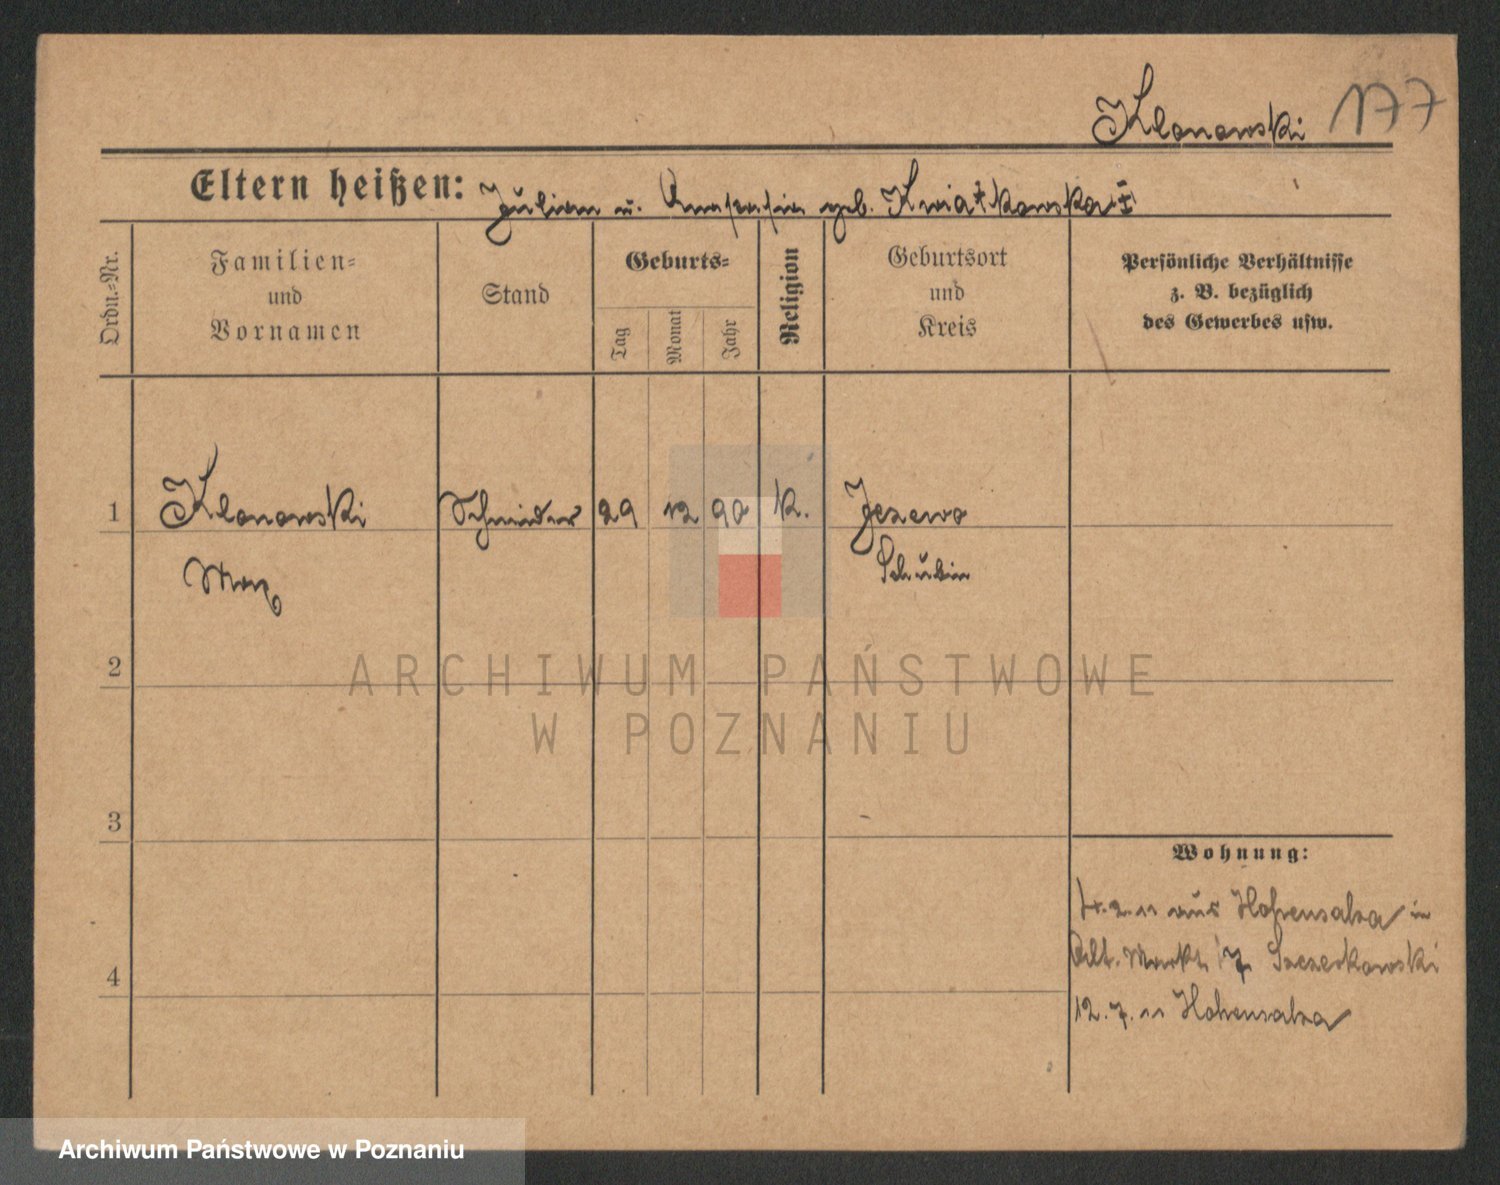 Klonowski 177
Eltern heißen: Julian u. Anastasia geb. Kwiatkowska
Ordn.-Nr.
Familien-
und
Vornamen
Stand
Geburts-
Tag
Monat
Jahr
Religion
Geburtsort
und
Kreis
Persönliche Verhältnisse
z. B. bezüglich
des Gewerbes usw.
1 Klonowski Schneider 29 12 90 k. Jezewo
Max Schubin
2
3
4
Wohnung:
2. 11 aus Hohensalza in
Alt. Markt 7
12. 7. 11 Hohensalza
ARCHIWUM PAŃSTWOWE
W POZNANIU
Archiwum Państwowe w Poznaniu